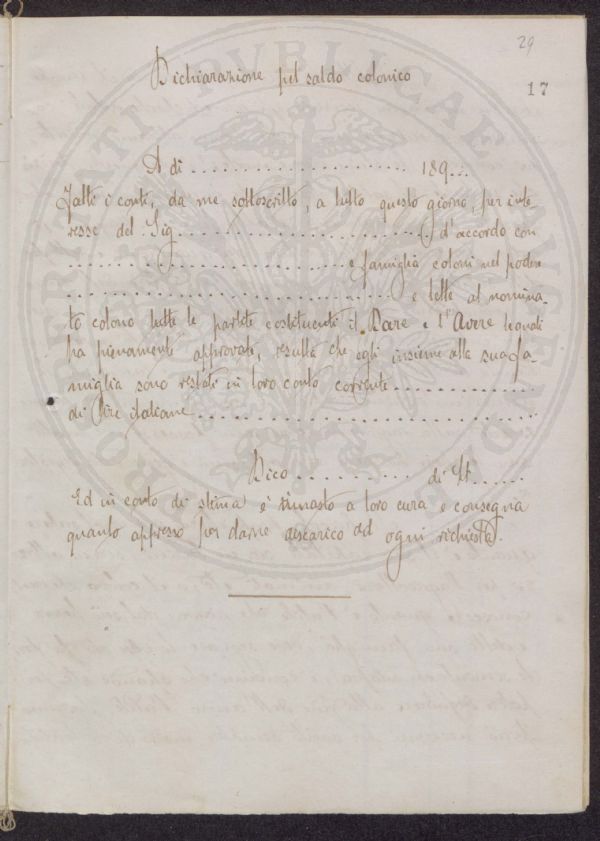 29
17
Dichiarazione pel saldo colonico
A dì ........................ 189...
Fatti i conti, da me sottoscritto, a tutto questo giorno, per inte-
resse del Sig. ............................ d'accordo con
.................................. e famiglia coloni nel podere
...................................... e lette al nomina-
to colono tutte le partite costituenti il Dare e l'Avere quali
ha pienamente approvate, resulta che egli insieme alla sua fa-
miglia sono restati in loro conto corrente ................
di lire italiane ........................................
Dico .......... di Lt. ......
Ed in conto di stima è rimasto a loro cura e consegna
quanto appresso per darne discarico ad ogni richiesta.